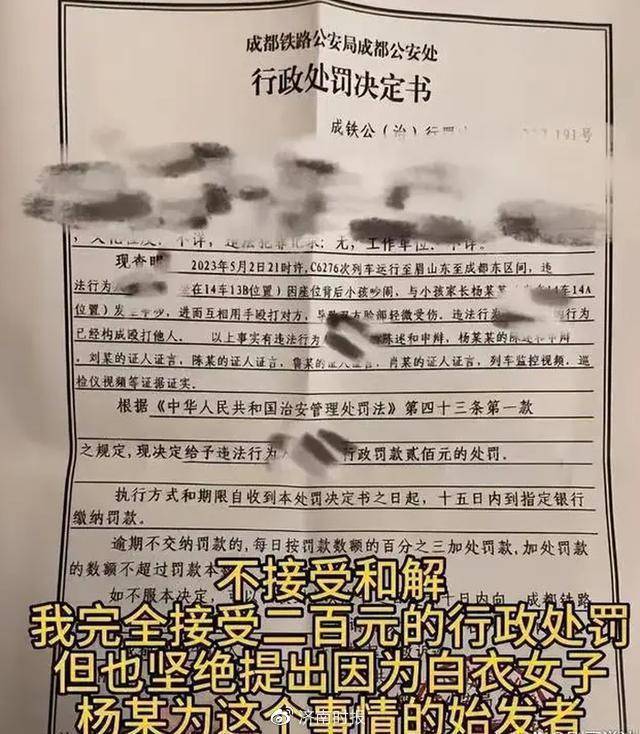 成都铁路公安局成都公安处
行政处罚决定书
成铁公(治)行罚 191号
文化程度: 不详, 违法犯罪记录: 无, 工作单位: 不详。
现查明 2023年5月2日21时许, C6276次列车运行至眉山东至成都东区间, 违
法行为 坐在14车13B位置)因座位背后小孩吵闹, 与小孩家长杨某 14车14A
位置)发生争吵, 进而互相用手殴打对方, 导致双方脸部轻微受伤. 违法行为 的行为
已经构成殴打他人. 以上事实有违法行为 陈述和申辩, 杨某某的陈述和申辩,
刘某的证人证言, 陈某的证人证言, 鲁某的证人证言, 肖某的证人证言, 列车监控视频, 巡
检仪视频等证据证实.
根据《中华人民共和国治安管理处罚法》第四十三条第一款
之规定, 现决定给予违法行为人 行政罚款贰佰元的处罚.
执行方式和期限自收到本处罚决定书之日起, 十五日内到指定银行
缴纳罚款。
逾期不交纳罚款的, 每日按罚款数额的百分之三加处罚款, 加处罚款
的数额不超过罚款本
不接受和解
如不服本决定, 可以 十日内向 成都铁路
我完全接受二百元的行政处罚
但也坚绝提出因为白衣女子
杨某为这个事情的始发者
济南时报